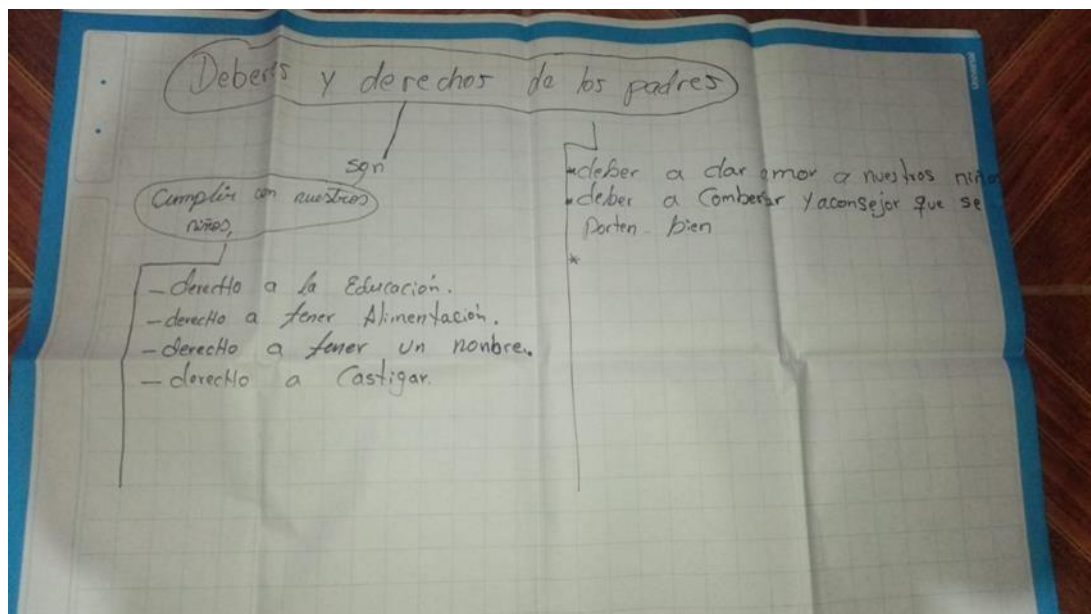 Deberes y derechos de los padres
son
Cumplir con nuestros
niños,
- derecHo a la Educación.
- derecHo a tener Alimentación.
- derecHo a tener un nonbre.
- derecHo a Castigar.
*deber a dar amor a nuestros niños
*deber a Comberzar y aconsejar que se
porten bien
*